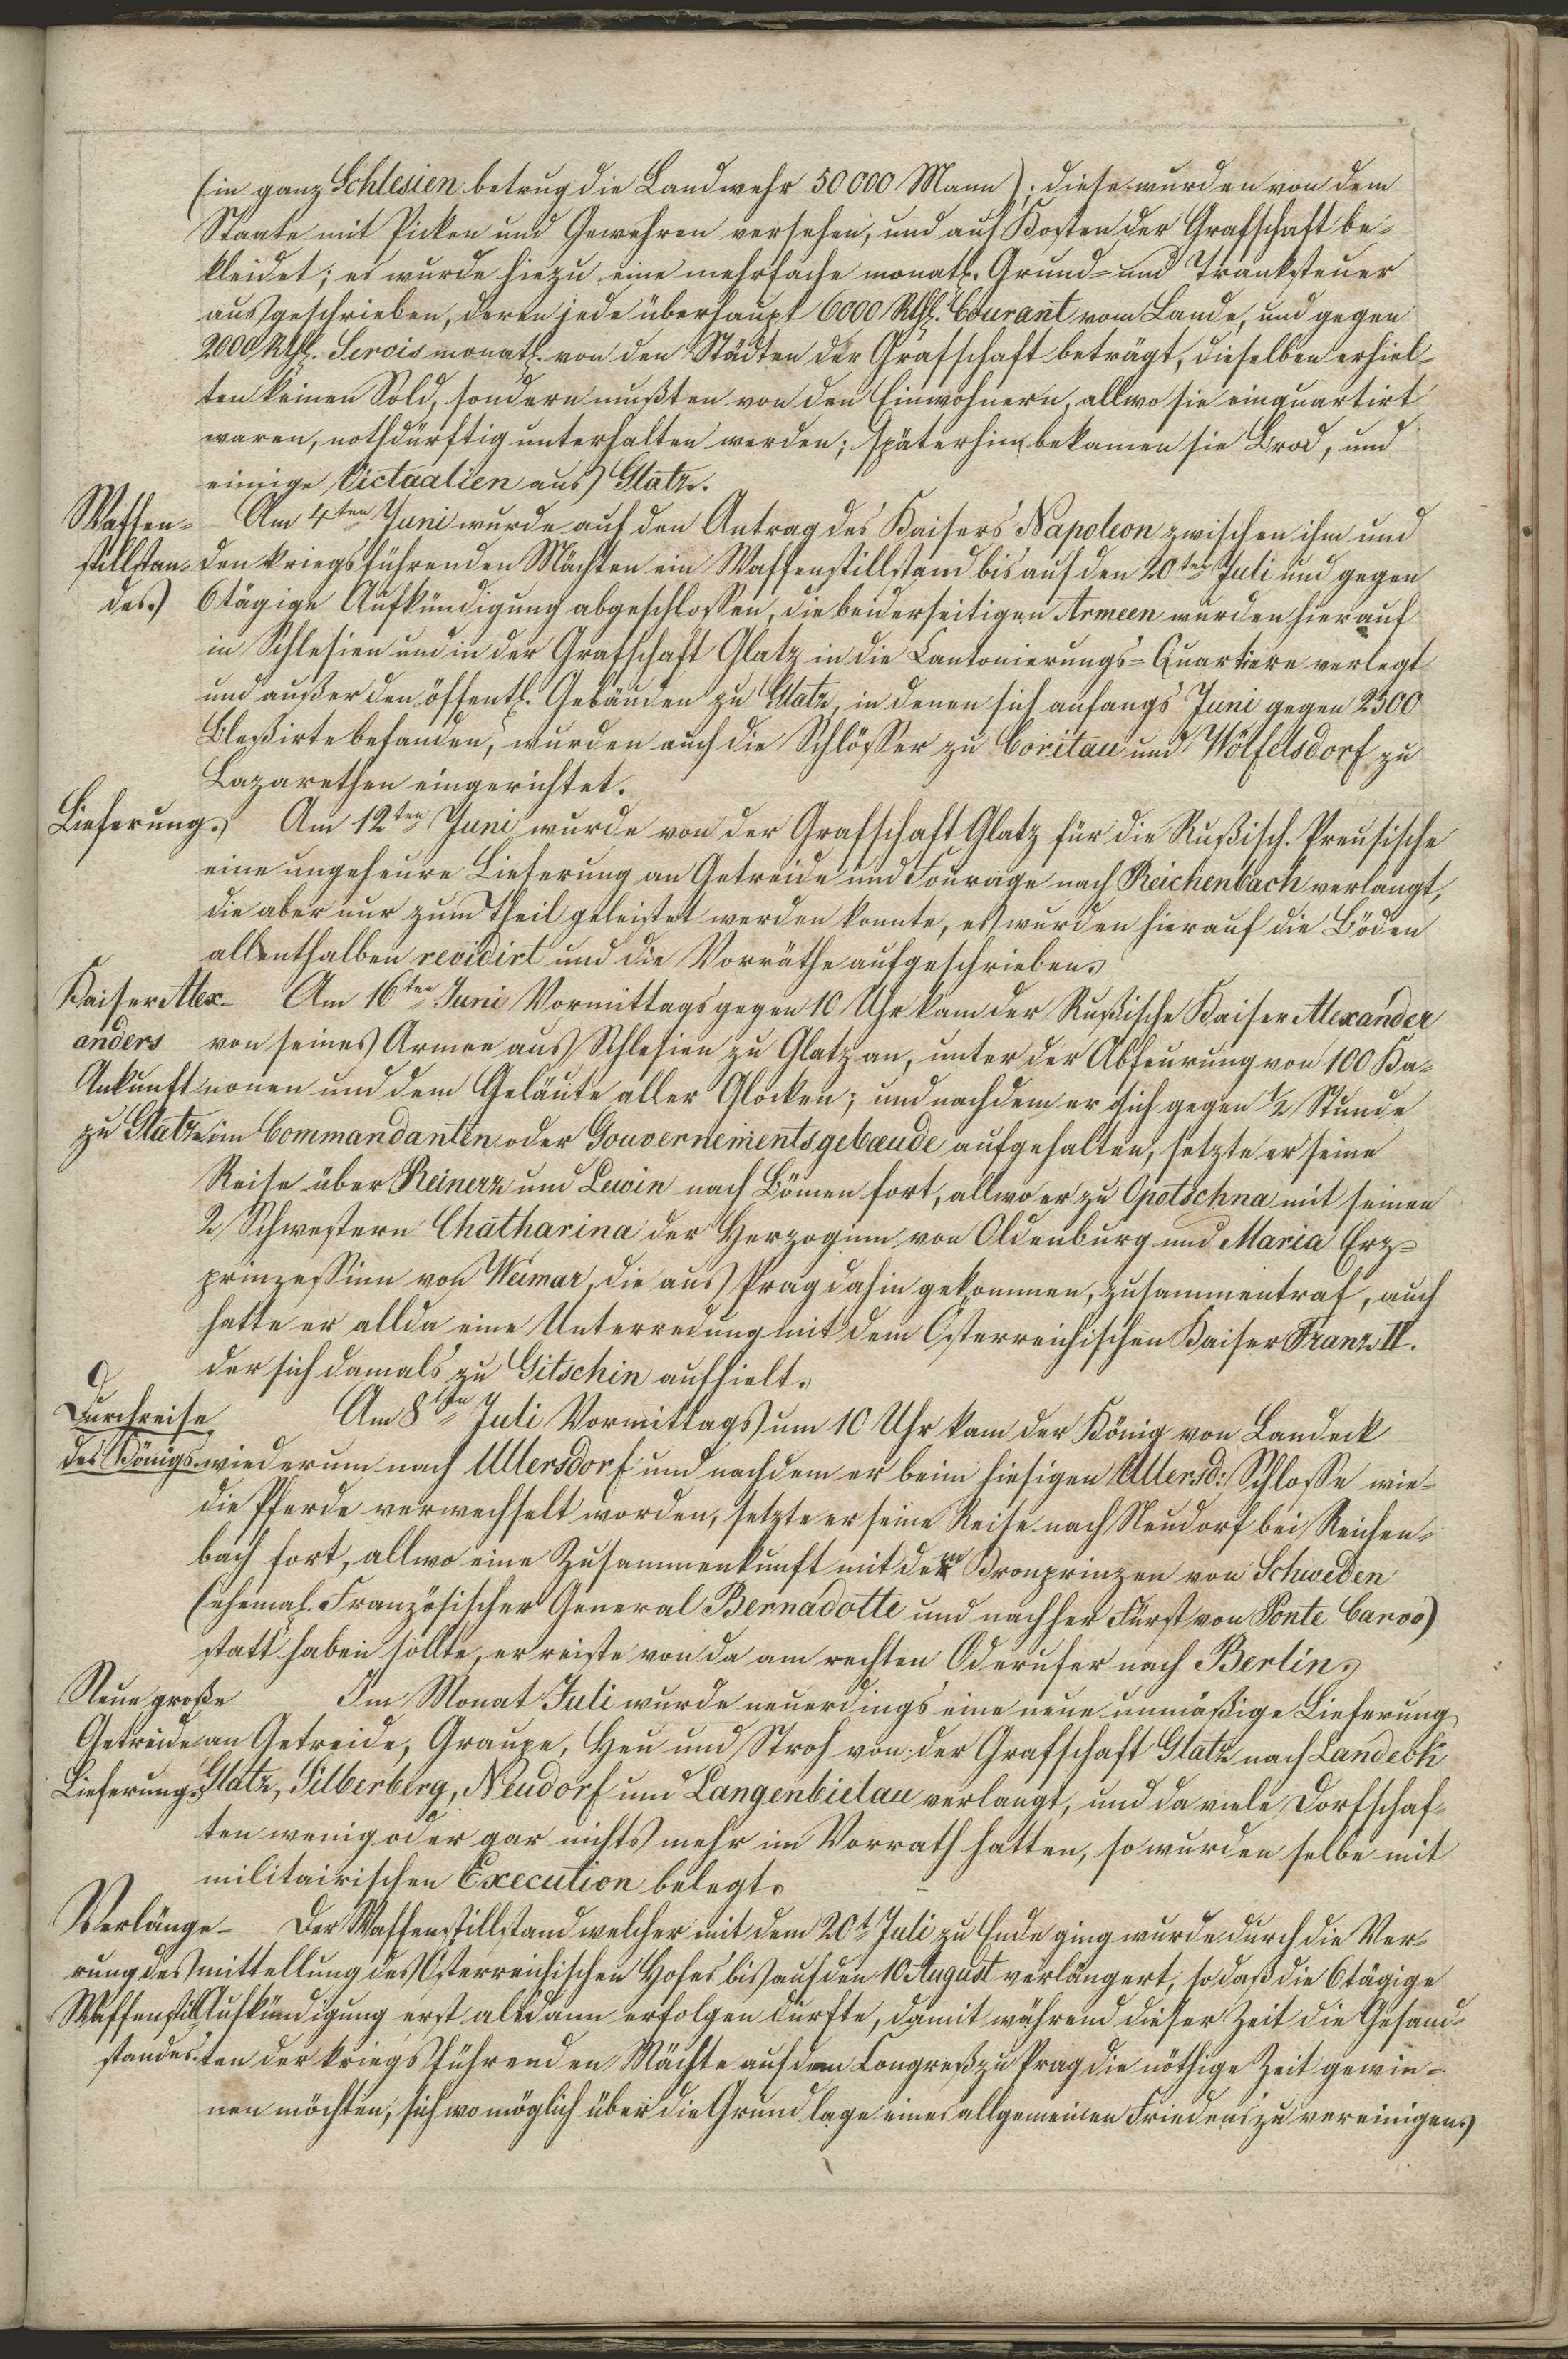 (in ganz Schlesien betrug die Landwehr 50000 Mann); diese wurden von dem
Staate mit Picken und Gewehren versehen, und auf Kosten der Grafschaft be-
kleidet; es wurde hiezu eine mehrfache monatl. Grund- und Tranksteuer
ausgeschrieben, deren jede überhaupt 6000 Rthl. Courant vom Lande, und gegen
2000 Rthl. Servis monatl. von den Städten der Grafschaft beträgt, dieselben erhiel-
ten keinen Sold, sondern mußten von den Einwohnern, allwo sie einquartirt
waren, nothdürftig unterhalten werden; späterhin bekamen sie Brod, und
einige Victualien aus Glatz.
Waffen-
stillstan-
des.
Am 4ten Juni wurde auf den Antrag des Kaisers Napoleon zwischen ihm und
den kriegsführenden Mächten ein Waffenstillstand bis auf den 20ten Juli und gegen
6tägige Aufkündigung abgeschlossen, die beiderseitigen Armeen wurden hierauf
in Schlesien und in der Grafschaft Glatz in die Cantonierungs-Quartiere verlegt
und außer den öffentl. Gebäuden zu Glatz, in denen sich anfangs Juni gegen 2500
Bleßirte befanden, wurden auch die Schlösser zu Coritau und Wölfelsdorf zu
Lazarethen eingerichtet.
Lieferung.
Am 12ten Juni wurde von der Grafschaft Glatz für die Rußisch. Preusische
eine ungeheure Lieferung an Getreide und Fourage nach Reichenbach verlangt,
die aber nur zum Theil geleistet werden konnte, es wurden hierauf die Böden
allenthalben revidirt und die Vorräthe aufgeschrieben.
Kaiser Alex-
anders
Ankunft
zu Glatz.
Am 16ten Juni Vormittags gegen 10 Uhr kam der Rußische Kaiser Alexander
von seines Armee aus Schlesien zu Glatz an, unter der Abfeurung von 100 Ka-
nonen und dem Geläute aller Glocken; und nachdem er sich gegen 1/2 Stunde
im Commandanten oder Gouvernementsgebæude aufgehalten, setzte er seine
Reise über Reinerz und Lewin nach Bömen fort, allwo er zu Opotschna mit seinen
2 Schwestern Chatharina der Herzoginn von Oldenburg und Maria Erz-
prinzessinn von Weimar, die aus Prag dahin gekommen, zusammentraf, auch
hatte er allda eine Unterredung mit dem Österreichischen Kaiser Franz II.
der sich damals zu Gitschin aufhielt.
Durchreise
des Königs.
Am 8ten Juli Vormittags um 10 Uhr kam der König von Landeck
wiederum nach Ullersdorf und nachdem er beim hiesigen Ullersd: Schlosse wie-
die Pferde verwechselt worden, setzte er seine Reise nach Neudorf bei Reichen-
bach fort, allwo eine Zusammenkunft mit dem Kronprinzen von Schweden
(ehemal. Französischer General Bernadotte und nachher Fürst von Ponte Carvo)
statt haben sollte, er reiste von da am rechten Oderufer nach Berlin.
Neue große
Getreide
Lieferung.
Im Monat Juli wurde neuerdings eine neue unmäßige Lieferung
an Getreide, Graupe, Heu und Stroh von der Grafschaft Glatz nach Landeck
Glatz, Silberberg, Neudorf und Langenbielau verlangt, und da viele Dorfschaf-
ten wenig oder gar nichts mehr im Vorrath hatten, so wurden selbe mit
militairischen Execution belegt.
Verlänge-
rung des
Waffenstill
standes.
Der Waffenstillstand welcher mit dem 20t Juli zu Ende ging wurde durch die Ver-
mittellung des Österreichischen Hofes bis auf den 10 August verlängert, so daß die 6tägige
Aufkündigung erst alsdann erfolgen durfte, damit während dieser Zeit die Gesand-
ten der kriegsführenden Mächte auf dem Congreß zu Prag die nöthige Zeit gewin-
nen möchten, sich wo möglich über die Grundlage eines allgemeinen Friedens zu vereinigen.